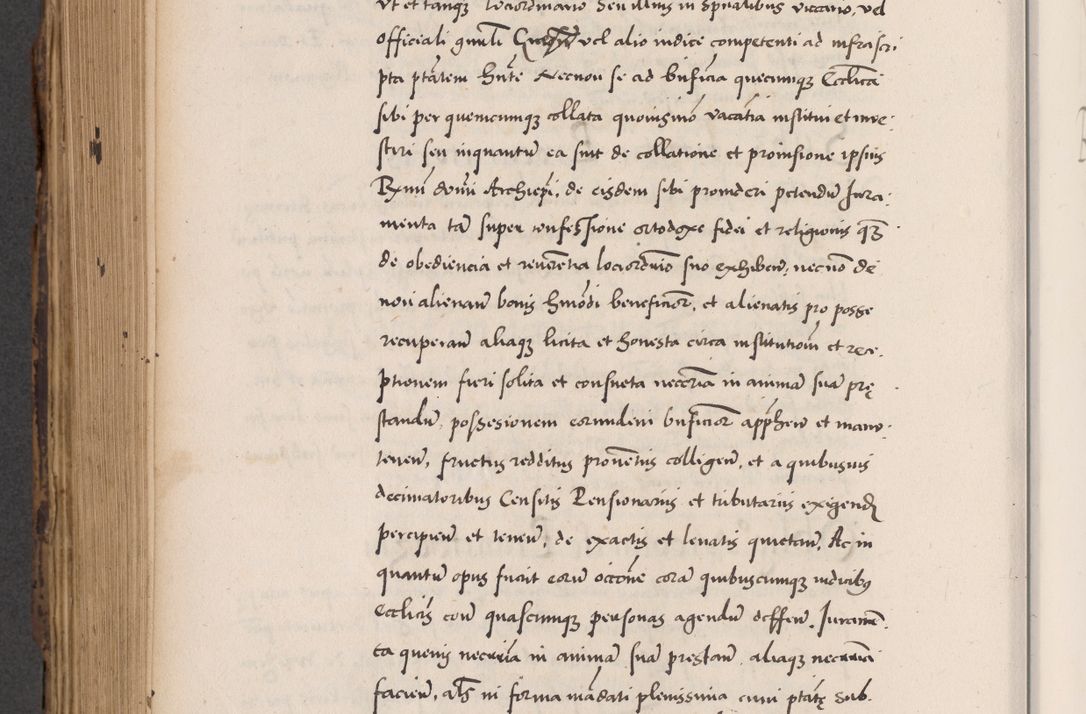 ut et tanqz lociordinario Seu illius in Spiritualibus vicario, vel
officiali gnali vel alio iudice competenti ad infrascri-
pta ptatem hnte Necnon se ad bnficia quecunqz Ecclica
sibi per quemcumqz collata quovismo vacatia institui et inve-
stiri seu inquantu ea sint de collatione et provisione ipsius
Rmi domi Archiepi, de eisdem sibi provideri petendu Jura-
menta ta super confessione ortodoxe fidei et religionis qz
de obediencia et reverentia lociordinario suo exhiben, necno de
non alienan bonis hmodi beneficior, et alienatis pro posse
recuperan aliaqz licita et honesta circa institution et rece-
ptionem fieri solita et consueta necoria in anima sua prę
standu, possesionem eorundem bnficior apphen et manu-
tenen, fructus redditus proventus colligen, et a quibusvis
decimatoribus Censitis Pensionariis et tributariis exigend
percipien et tenen, de exactis et levatis quietan, Ac in
quantu opus fuerit eoru occone cora quibuscumqz iudicibus
Ecclicis con quascumqz personas agendu deffen, Juramen-
ta quevis necraria in anima sua prestan aliaqz necraria
facien, als in forma madati plenissima cum ptate sub-